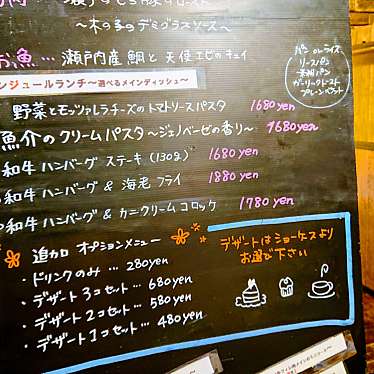 ～木の子のデミグラスソース～
お魚… 瀬戸内産 鯛と 天使エビのキュイ
ンジュールランチ～選べるメインディッシュ～
野菜とモッツァレラチーズのトマトソースパスタ 1680yen
魚介のクリームパスタ～ジェノベーゼの香り～ 1680yen
和牛ハンバーグ ステーキ (130g) 1680yen
和牛ハンバーグ & 海老 フライ 1880yen
和牛ハンバーグ & カニクリーム コロッケ 1780yen
パン or ライス
ガーリックトースト
追加 オプションメニュー
・ドリンクのみ … 280yen
・デザート3コセット… 680yen
・デザート2コセット… 580yen
・デザート1コセット… 480yen
デザートはショーケースより
お選び下さい